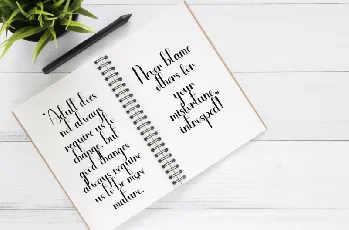 "Adult does
not always
require us to
change, but
good changes
always require
us to be more
mature.
Never blame
others for
your
misfortune,
introspect!"